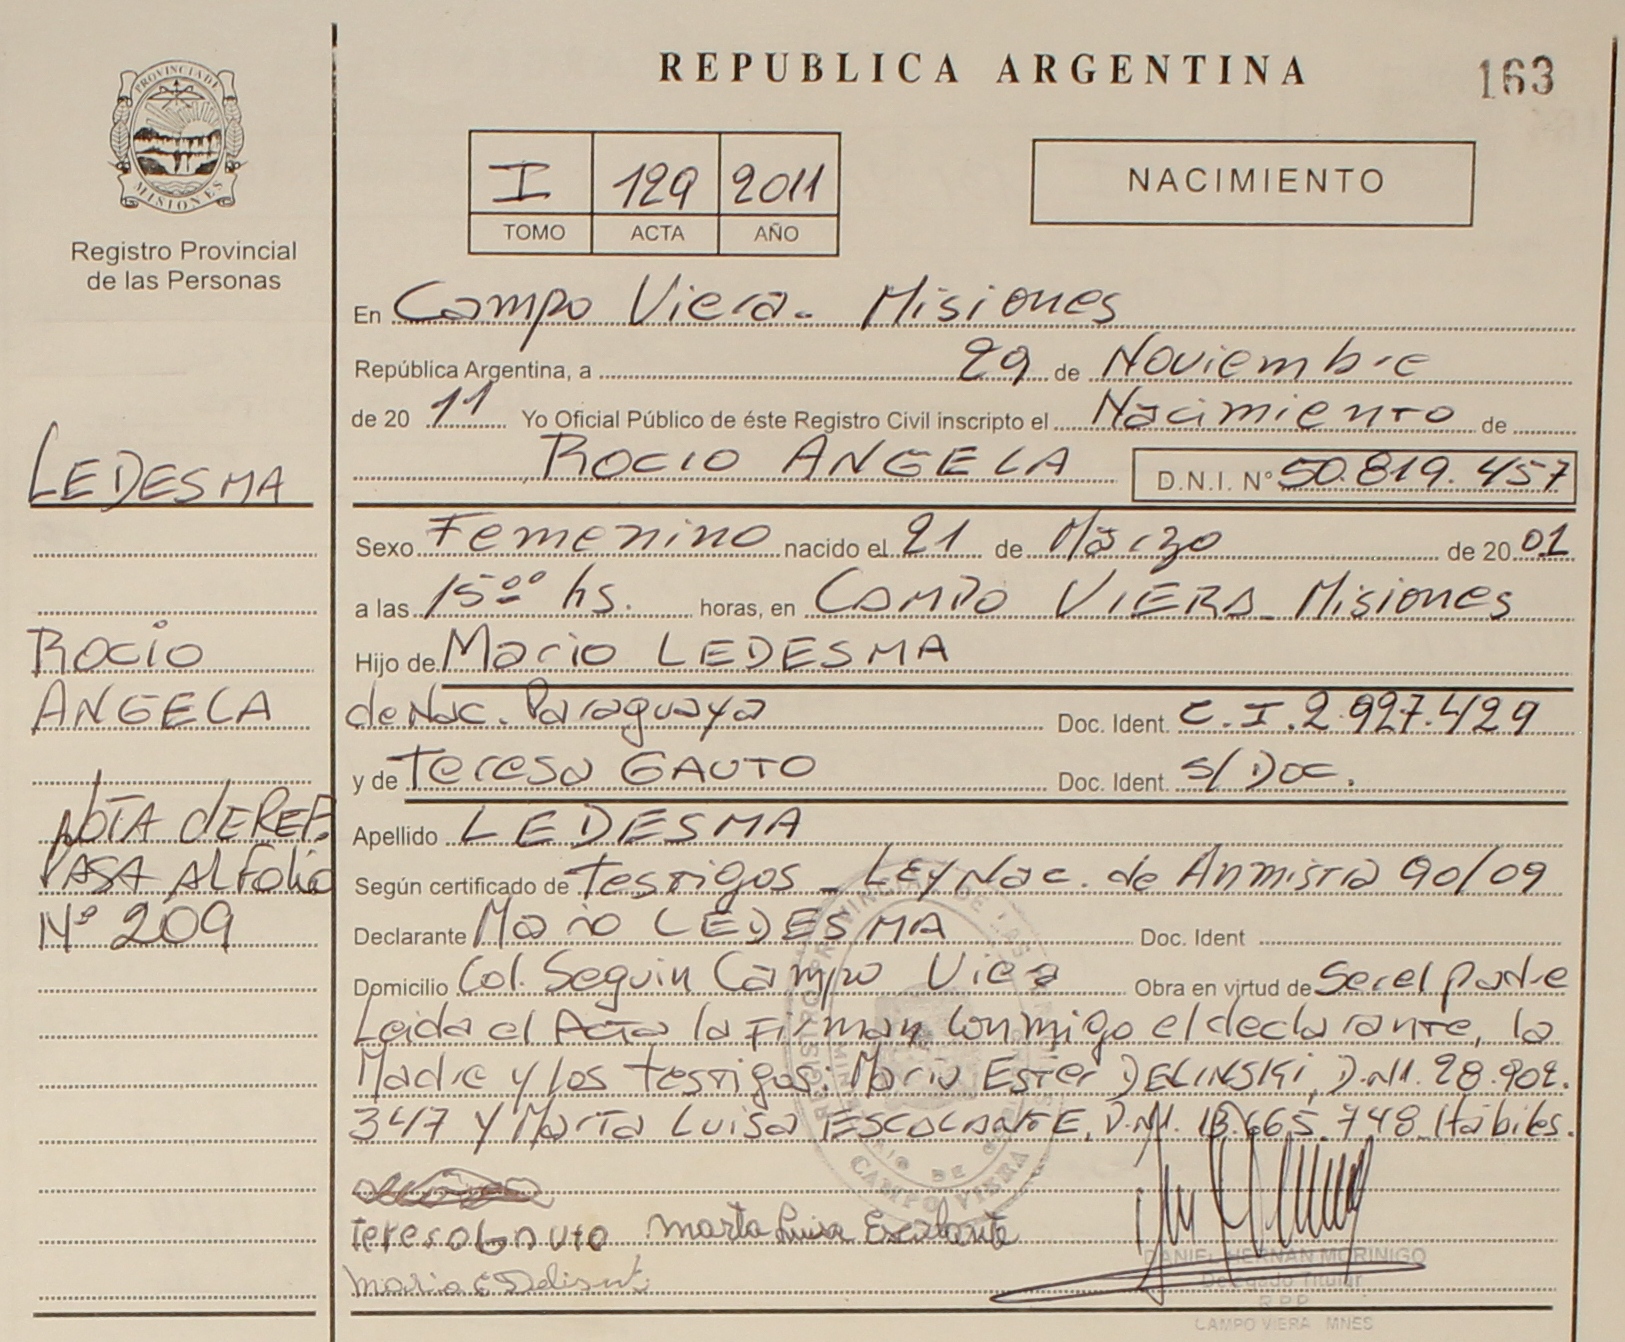 REPUBLICA ARGENTINA
163
PROVINCIA DE
MISIONES
Registro Provincial
de las Personas
I 129 2011
TOMO ACTA AÑO
NACIMIENTO
En Campo Viera - Misiones
República Argentina, a 29 de Noviembre
de 20 11 Yo Oficial Público de éste Registro Civil inscripto el Nacimiento de
ROCIO ANGELA D.N.I. N° 50.819.457
LEDESMA
Sexo Femenino nacido el 21 de Marzo de 20 01
a las 15⁰⁰ hs. horas, en CAMPO VIERA - Misiones
ROCIO
Hijo de Mario LEDESMA
ANGELA
de Nac. Paraguaya Doc. Ident. C.I. 2.927.429
y de Teresa GAUTO Doc. Ident. S/Doc.
NOTA de REF.
PASA AL Folio
Nº 209
Apellido LEDESMA
Según certificado de Testigos - LEY Nac. de Anmistia 90/09
Declarante Mario LEDESMA Doc. Ident
Domicilio Col. Seguin Campo Viera Obra en virtud de Ser el padre
Leida el Acta la Firman Conmigo el declarante, la
Madre y los testigos: Maria Ester DELINSKI, D.N.I. 28.902.
347 Y Marta Luisa ESCALANTE, D.N.I. 13.665.748 Hábiles.
Teresa Gauto Marta Luisa Escalante
Maria E
DANIEL HERNAN MORINIGO
Delegado Titular
R P P
CAMPO VIERA MNES